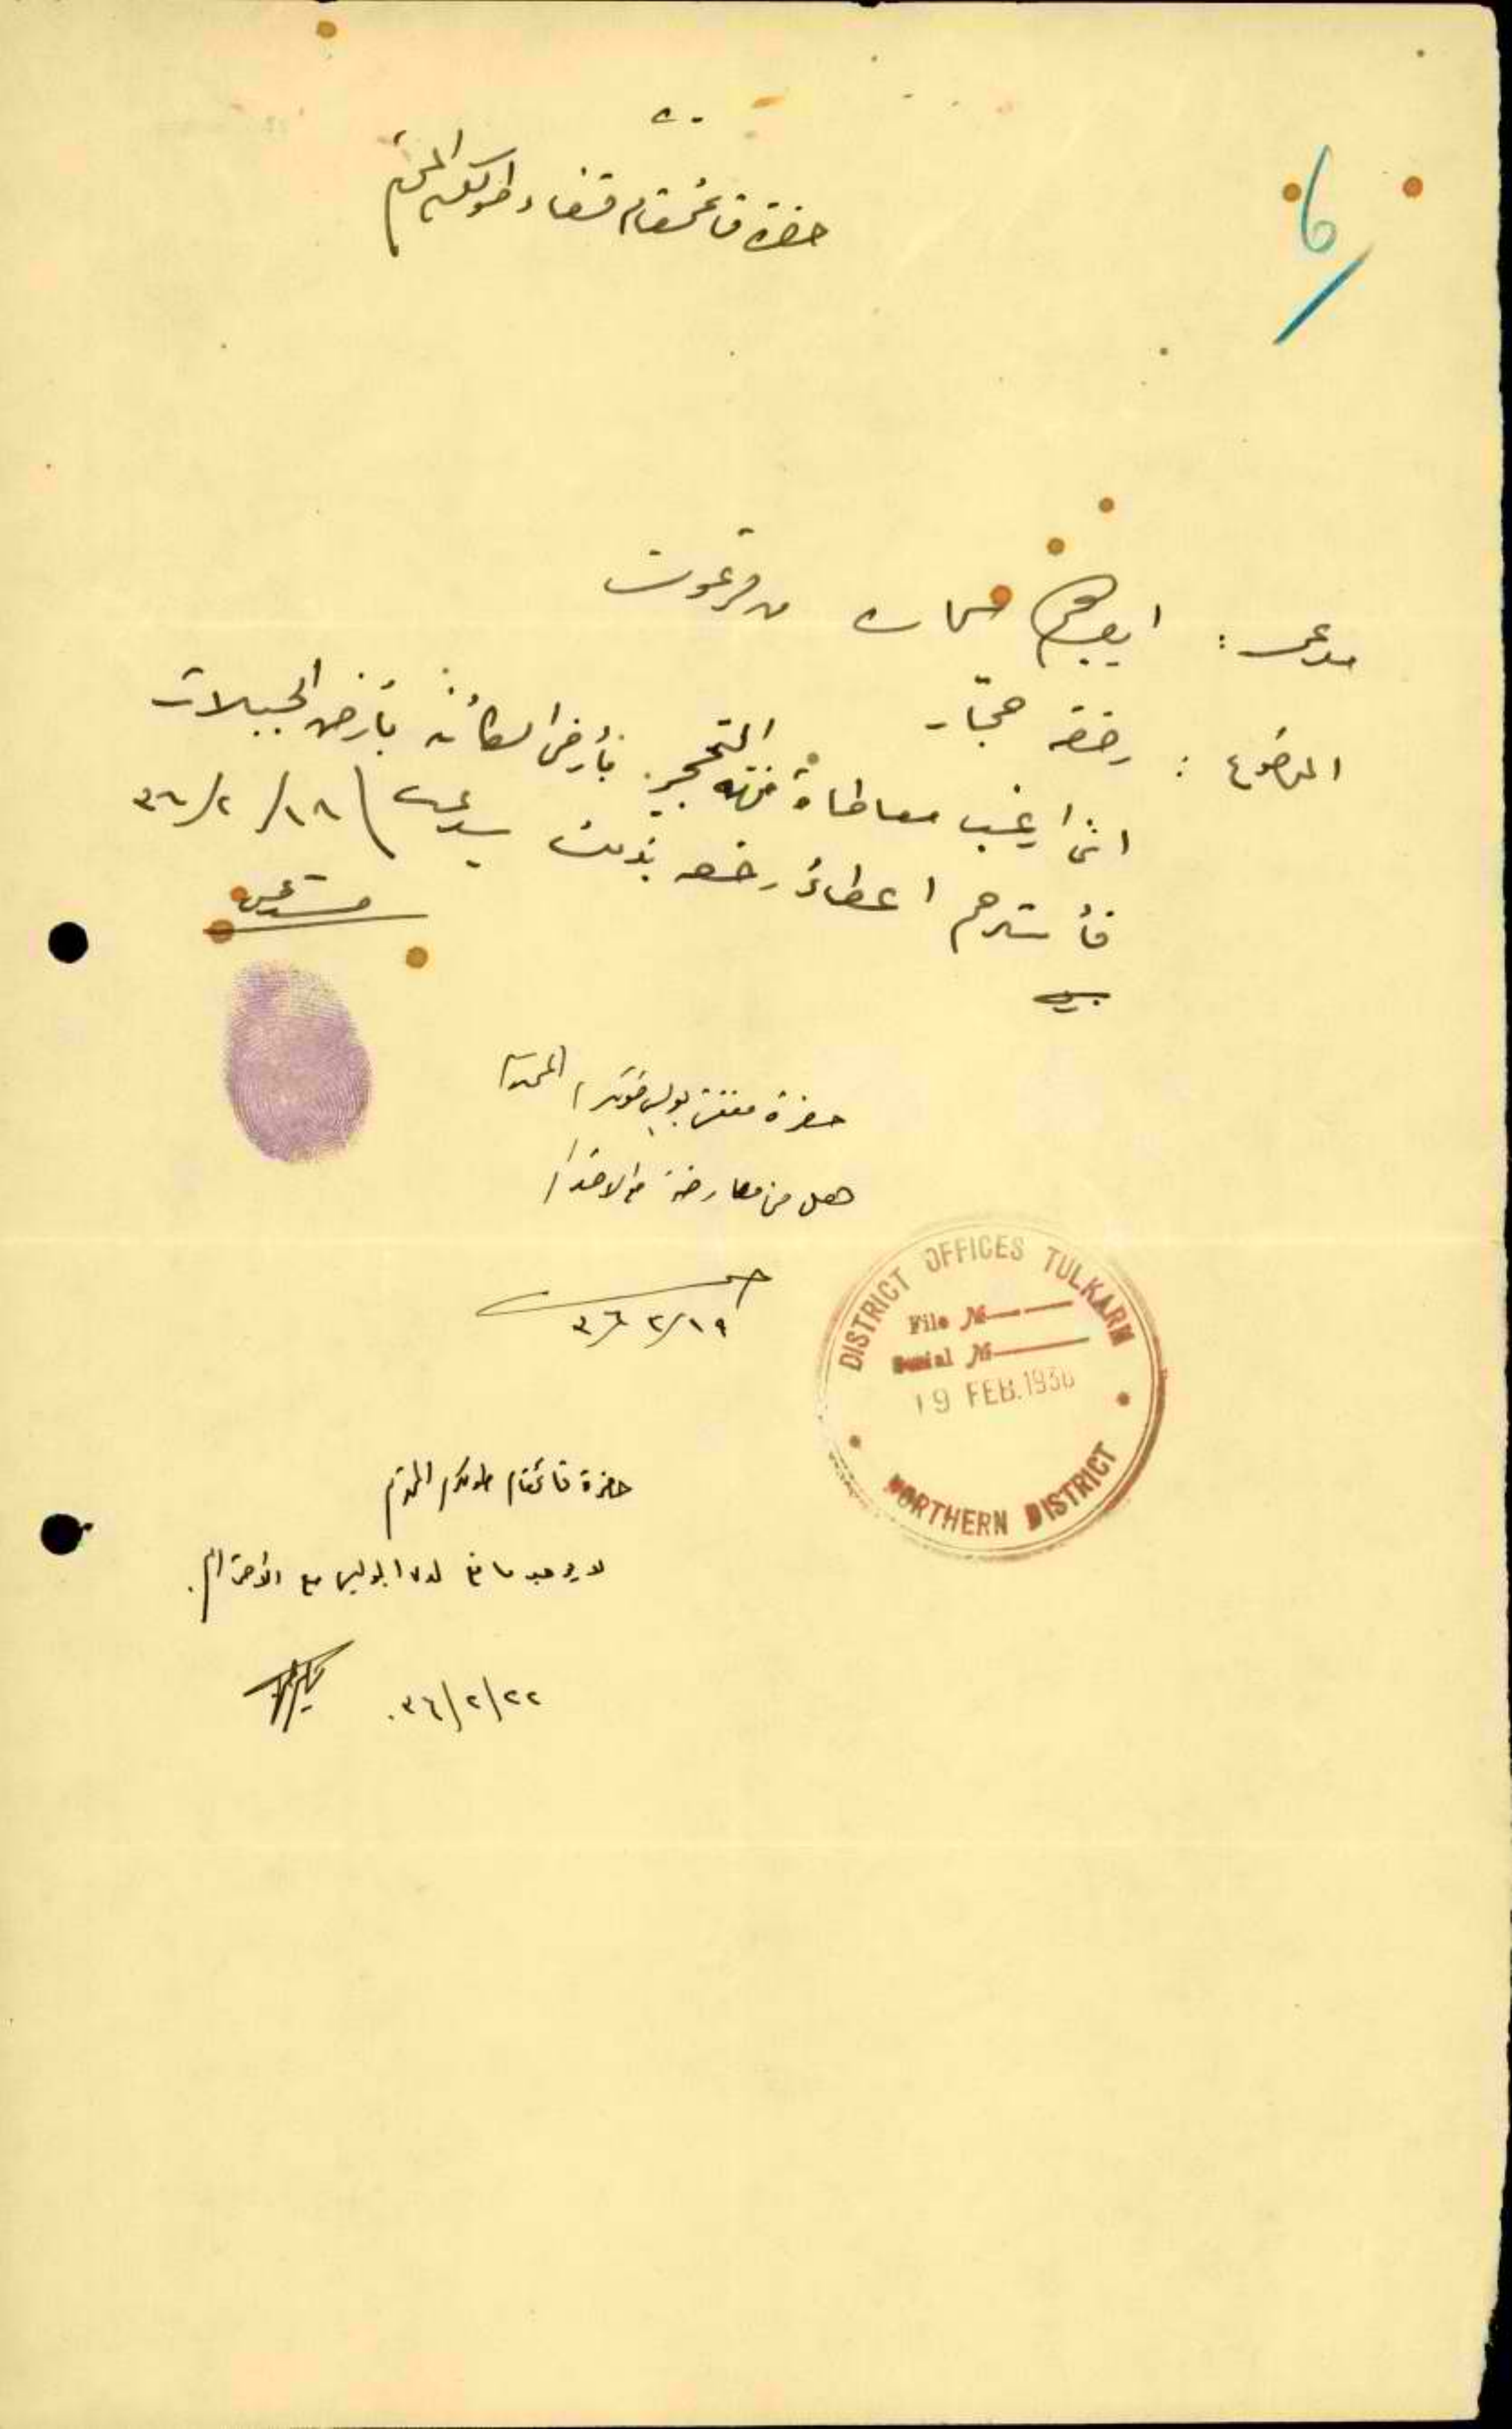 6
حضرة قائمقام قضاء طولكرم المحترم
مستدعي : ابراهيم من فرعون
الموضوع : رخصة حجار
انني ارغب معاطاة مهنة التحجير بأرض الكائنة بأرض الجبيلات
فأسترحم اعطائي رخصه بذلك سيدي ١٨/٢/٣٦
مستدعي
حضرة مفتش بوليس طولكرم المحترم
هل من معارضة مع الاحترام
٣٦/٢/١٩
DISTRICT OFFICES TULKARM
File №
Serial №
19 FEB. 1936
NORTHERN DISTRICT
حضرة قائمقام طولكرم المحترم
لا يوجد مانع لدى البوليس مع الاحترام.
٣٦/٢/٢٢.